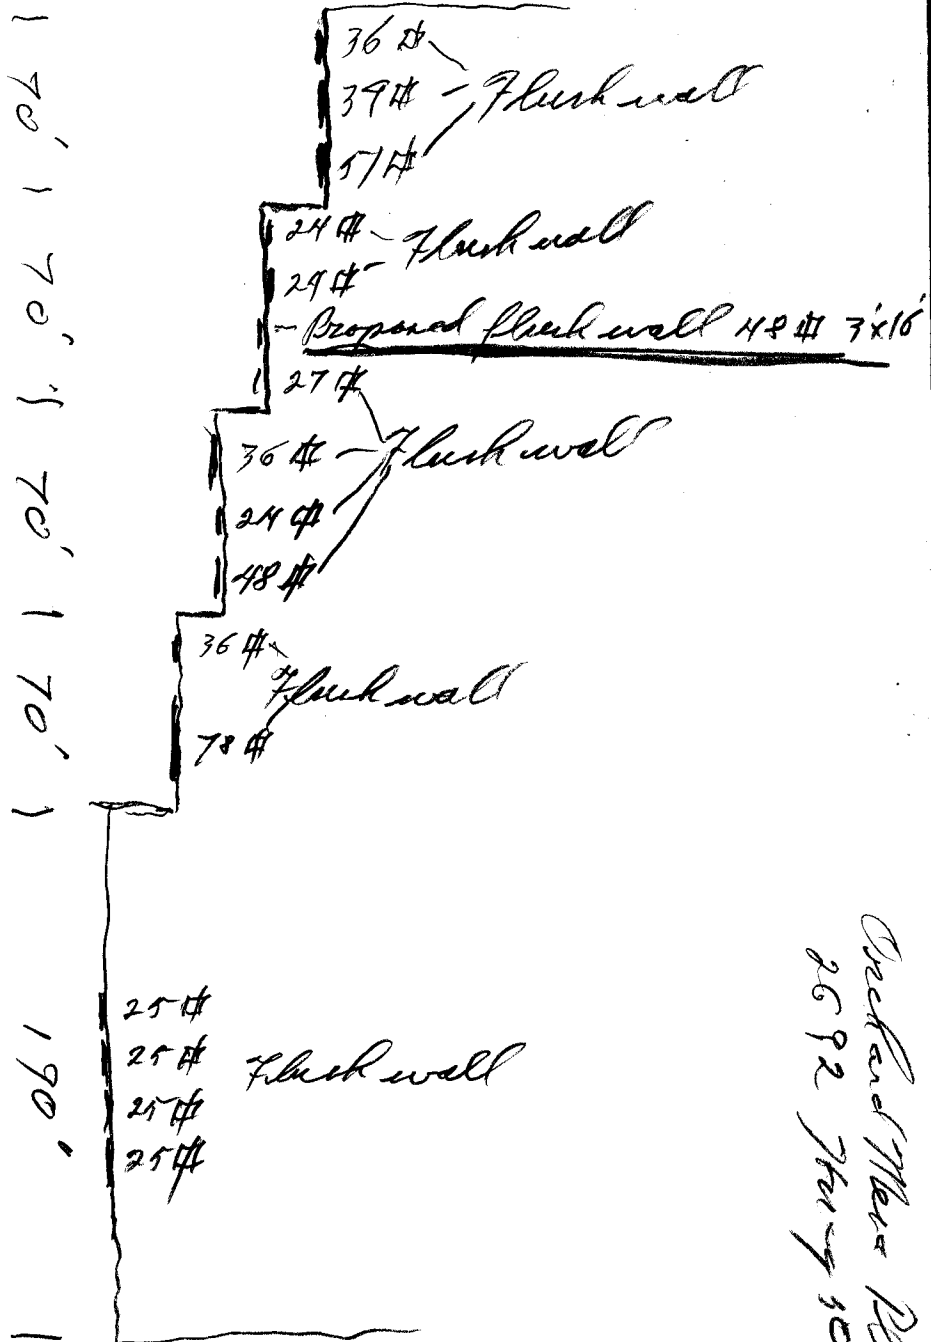 36 ⌗
39 ⌗ - Flush wall
51 ⌗
24 ⌗ - Flush wall
29 ⌗ -
- Proposed flush wall 48 ⌗ 3'x16'
27 ⌗
36 ⌗ - Flush wall
24 ⌗
48 ⌗
36 ⌗
Flush wall
78 ⌗
25 ⌗
25 ⌗ Flush wall
25 ⌗
25 ⌗
70'
70'
70'
70'
190'
Orchard Mesa
2692 Hwy 50